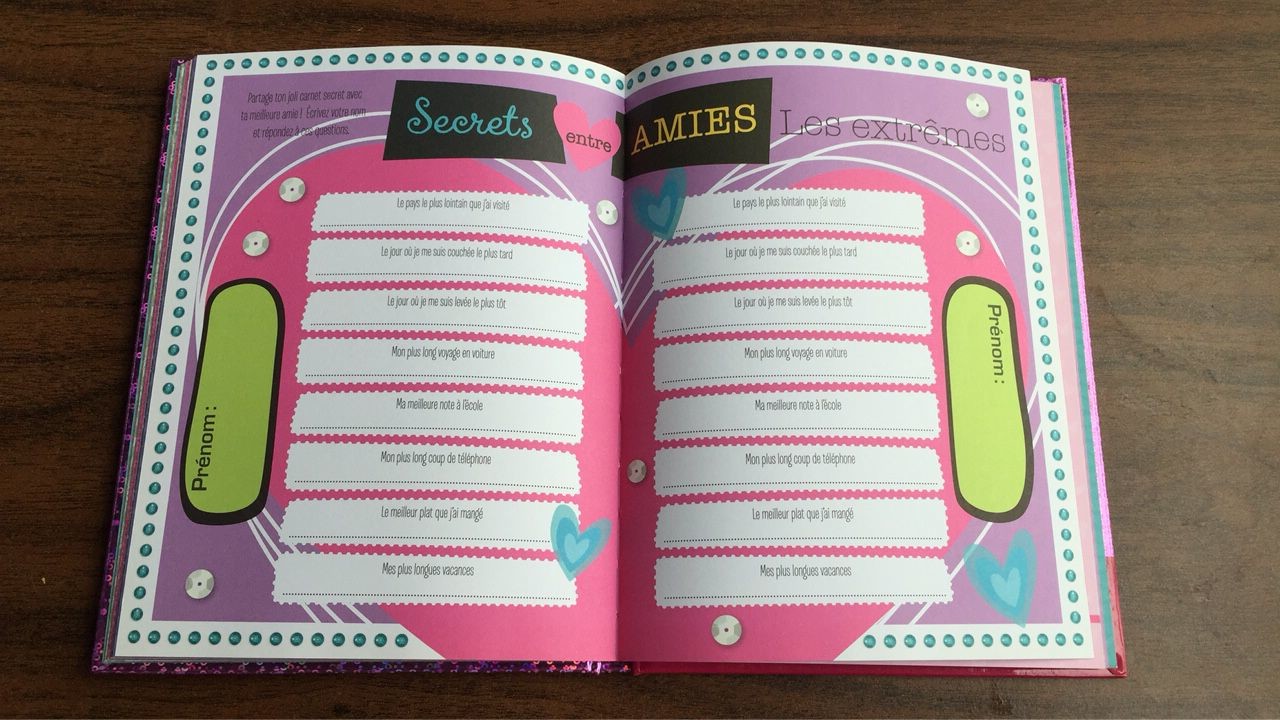 Partage ton joli carnet secret avec
ta meilleure amie ! Écrivez votre nom
et répondez à ces questions.
Secrets entre AMIES Les extrêmes
Le pays le plus lointain que j'ai visité
Le jour où je me suis couchée le plus tard
Le jour où je me suis levée le plus tôt
Mon plus long voyage en voiture
Ma meilleure note à l'école
Mon plus long coup de téléphone
Le meilleur plat que j'ai mangé
Mes plus longues vacances
Prénom :
Le pays le plus lointain que j'ai visité
Le jour où je me suis couchée le plus tard
Le jour où je me suis levée le plus tôt
Mon plus long voyage en voiture
Ma meilleure note à l'école
Mon plus long coup de téléphone
Le meilleur plat que j'ai mangé
Mes plus longues vacances
Prénom :